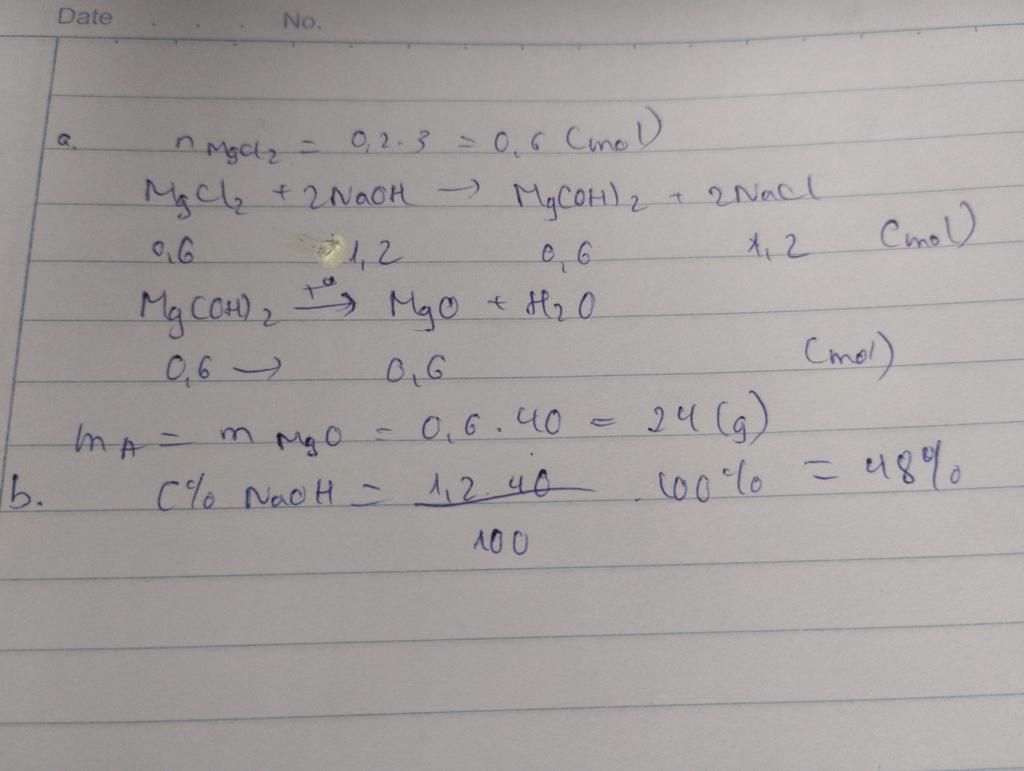 Date . . . . No.
a. n MgCl2 = 0,2.3 = 0,6 (mol)
MgCl2 + 2NaOH → Mg(OH)2 + 2NaCl
0,6 1,2 0,6 1,2 (mol)
Mg(OH)2 →t° MgO + H2O
0,6 → 0,6 (mol)
mA = m MgO = 0,6.40 = 24 (g)
b. C% NaOH = 1,2.40 / 100 . 100% = 48%